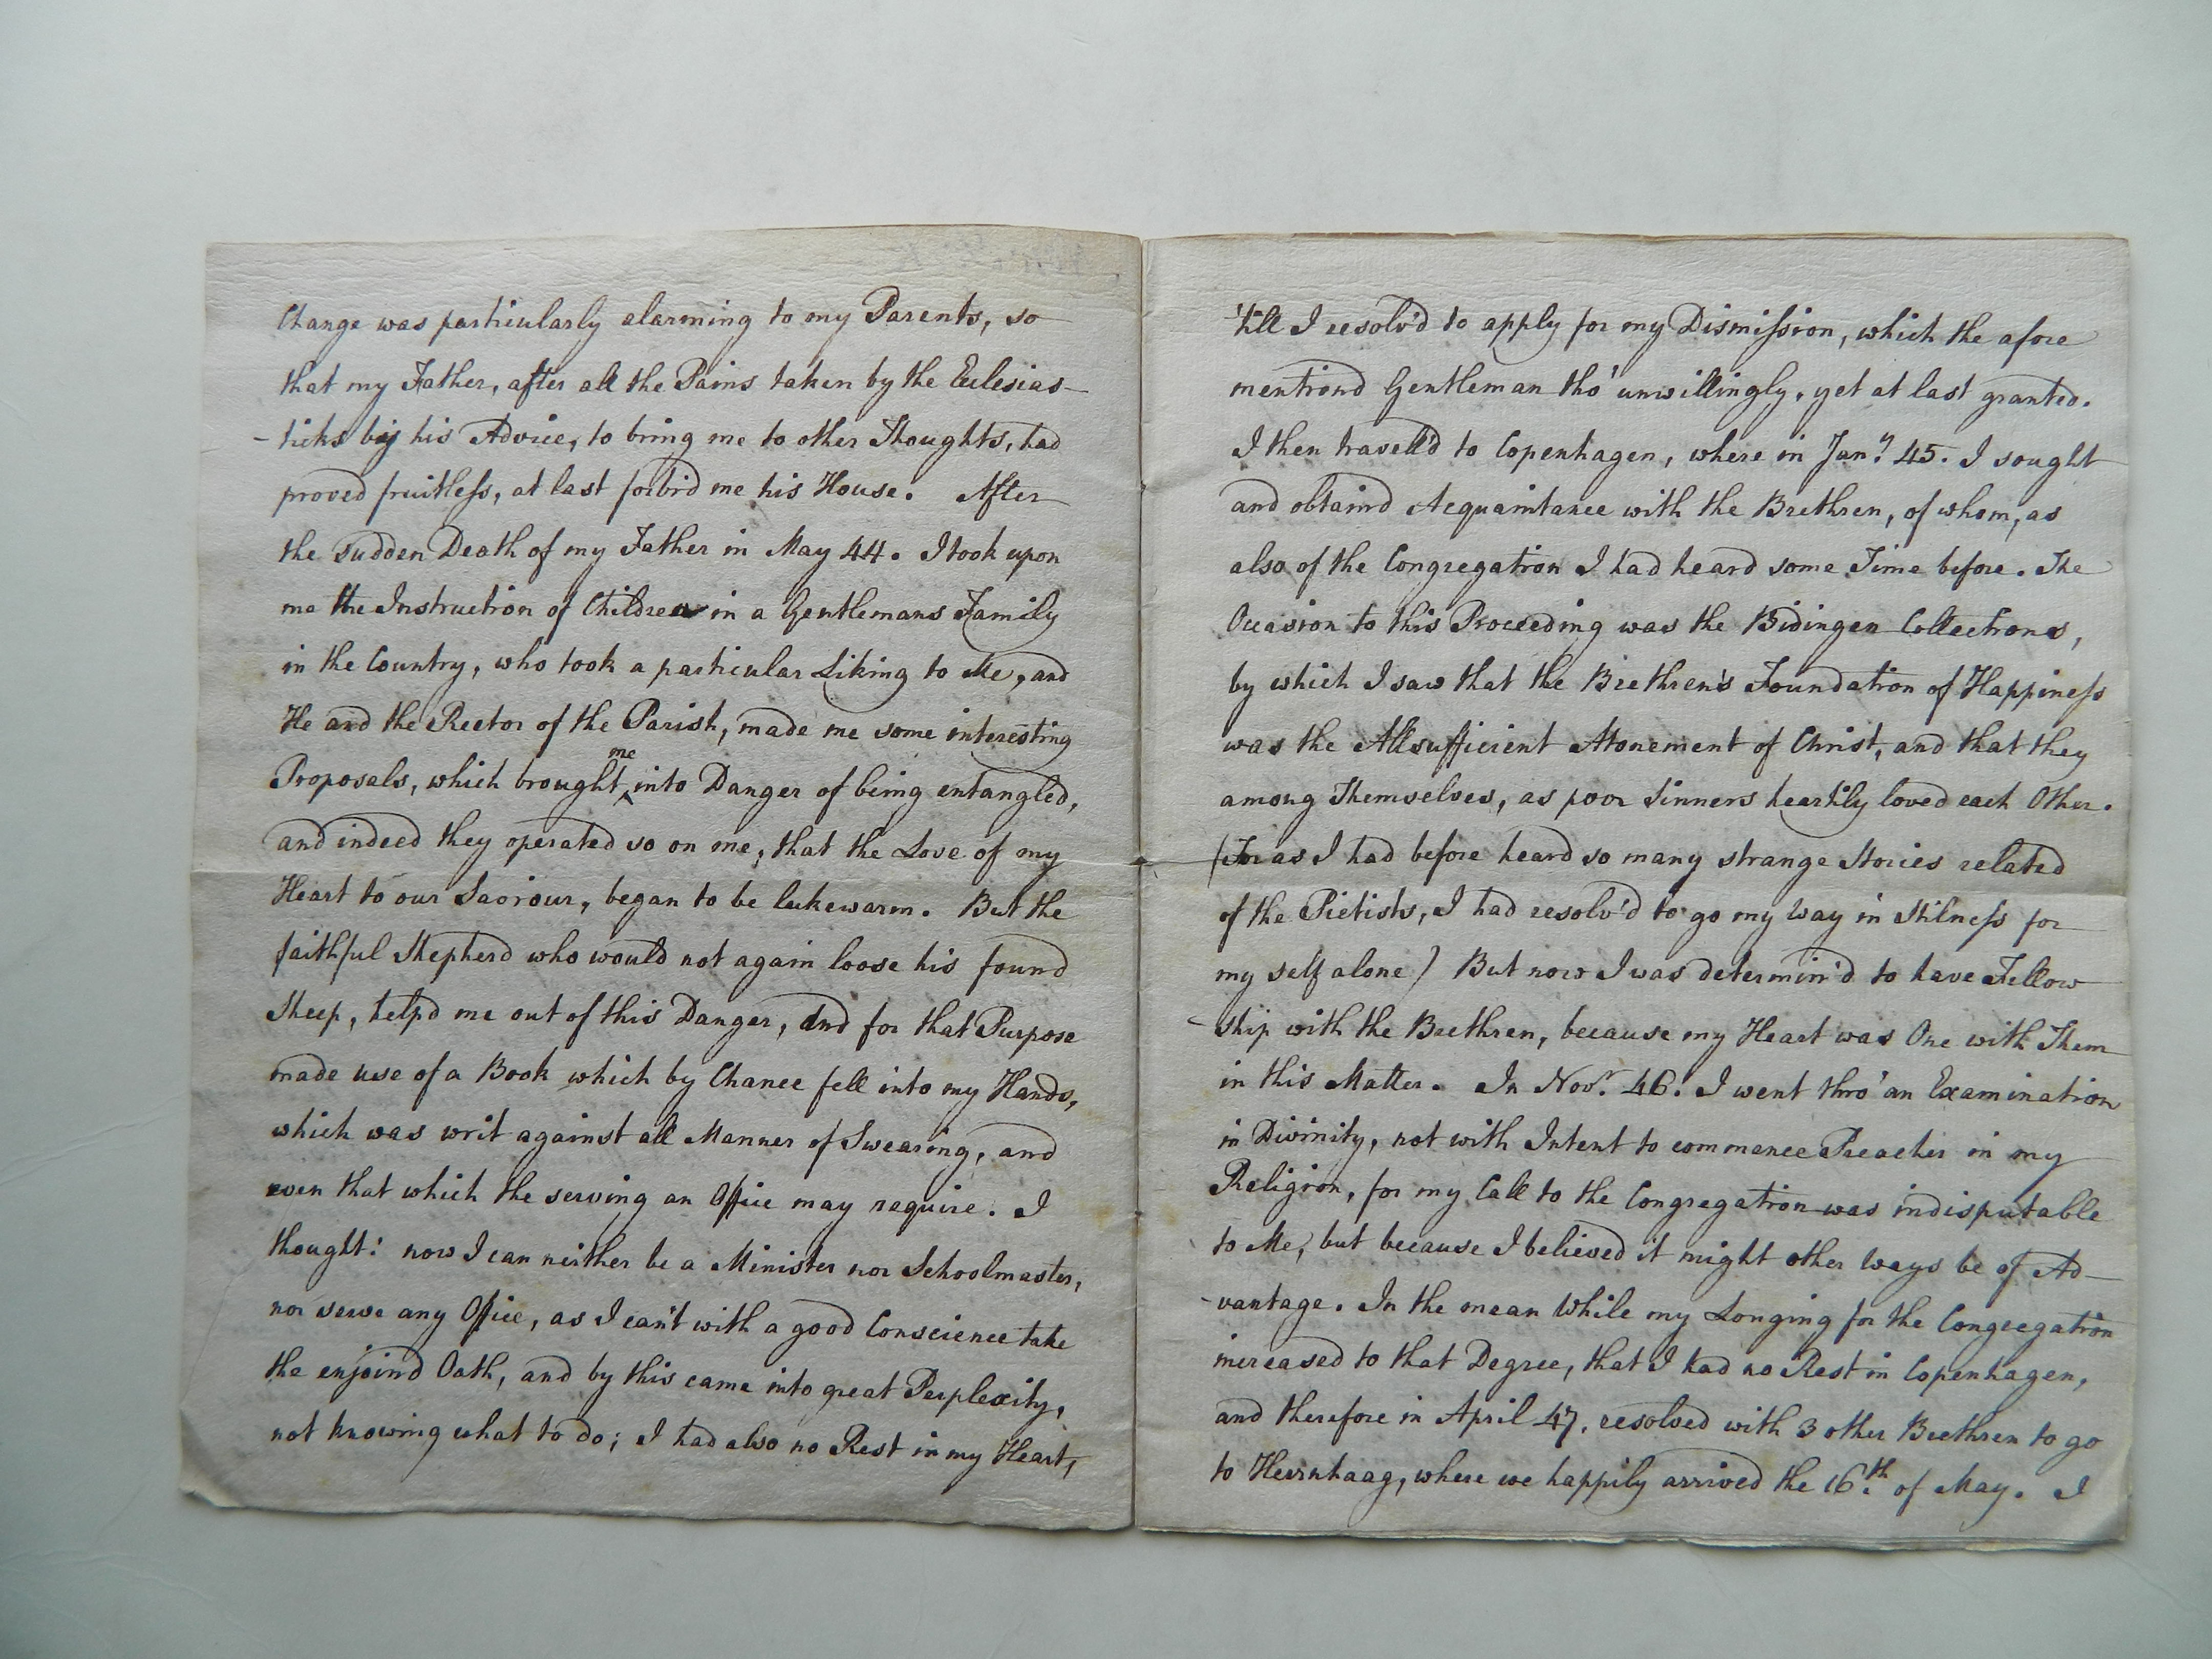 Change was particularly alarming to my Parents, so
that my Father, after all the Pains taken by the Eclesias-
-ticks by his Advice, to bring me to other Thoughts, had
proved fruitless, at last forbid me his House. After
the sudden Death of my Father in May 44. I took upon
me the Instruction of Children in a Gentlemans Family
in the Country, who took a particular Liking to Me, and
He and the Rector of the Parish, made me some interesting
Proposals, which brought me into Danger of being entangled,
and indeed they operated so on me, that the Love of my
Heart to our Saviour, began to be lukewarm. But the
faithful Shepherd who would not again loose his found
Sheep, help'd me out of this Danger, and for that Purpose
made use of a Book which by Chance fell into my Hands,
which was writ against all Manner of Swearing, and
even that which the serving an Office may require. I
thought: now I can neither be a Minister nor Schoolmaster,
nor serve any Office, as I can't with a good Conscience take
the enjoind Oath, and by this came into great Perplexity,
not knowing what to do; I had also no Rest in my Heart,
'till I resolv'd to apply for my Dismission, which the afore
mentiond Gentleman tho' unwillingly, yet at last granted.
I then travell'd to Copenhagen, where in Jany. 45. I sought
and obtaind Acquaintance with the Brethren, of whom, as
also of the Congregation I had heard some Time before. The
Occasion to this Proceeding was the Bidingen Collections,
by which I saw that the Brethren's Foundation of Happiness
was the Allsufficient Atonement of Christ, and that they
among Themselves, as poor Sinners heartily loved each Other.
(For as I had before heard so many strange Stories related
of the Pietists, I had resolv'd to go my Way in Stilness for
my self alone) But now I was determin'd to have Fellow
-ship with the Brethren, because my Heart was One with Them
in this Matter. In Novr. 46. I went thro' an Examination
in Divinity, not with Intent to commence Preacher in my
Religion, for my Call to the Congregation was indisputable
to Me, but because I believed it might other Ways be of Ad-
-vantage. In the mean While my Longing for the Congregation
increased to that Degree, that I had no Rest in Copenhagen,
and therefore in April 47. resolved with 3 other Brethren to go
to Herrnhaag, where we happily arrived the 16th. of May. I